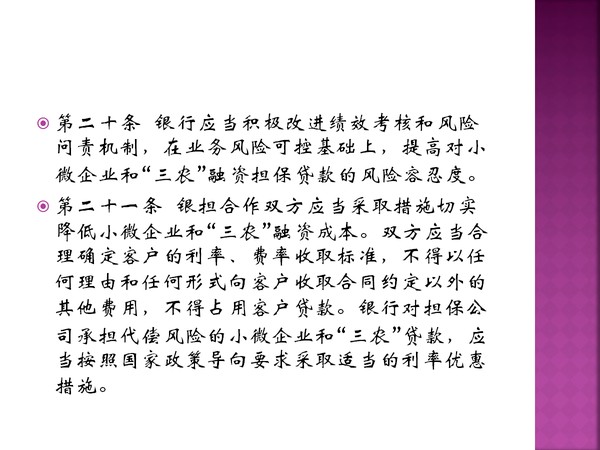 第二十条 银行应当积极改进绩效考核和风险
问责机制，在业务风险可控基础上，提高对小
微企业和“三农”融资担保贷款的风险容忍度。
第二十一条 银担合作双方应当采取措施切实
降低小微企业和“三农”融资成本。双方应当合
理确定客户的利率、费率收取标准，不得以任
何理由和任何形式向客户收取合同约定以外的
其他费用，不得占用客户贷款。银行对担保公
司承担代偿风险的小微企业和“三农”贷款，应
当按照国家政策导向要求采取适当的利率优惠
措施。